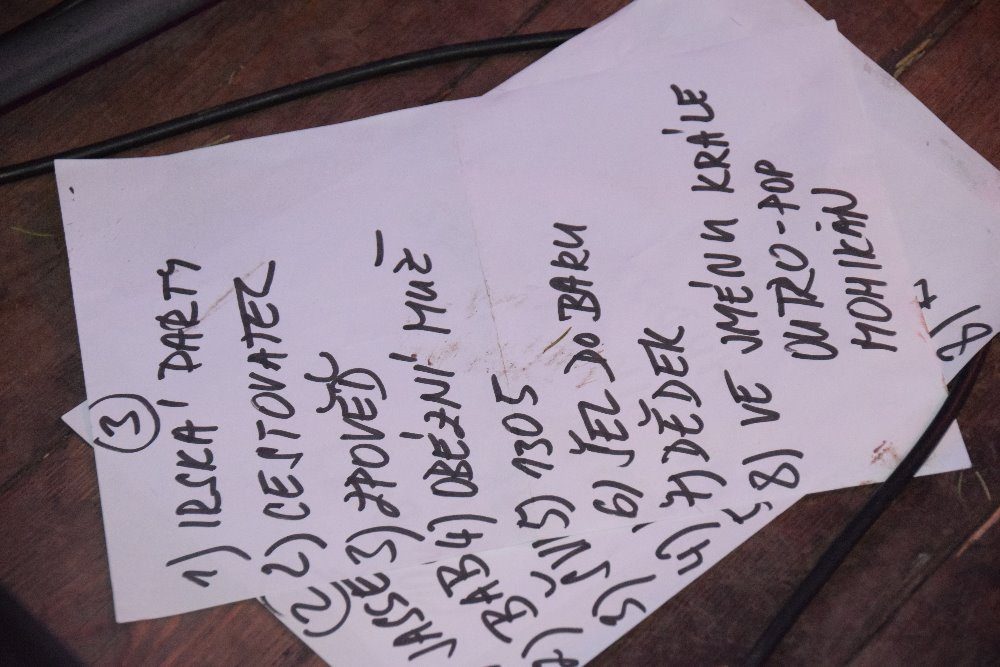 3
1) IRSKÁ PARTY
2) CESTOVATEL
3) ZPOVĚĎ
4) OBÉZNÍ MUŽ
5) 1305
6) ŠEL DO BARU
7) DĚDEK
8) VE JMÉNU KRÁLE
OUTRO - POP
MOHIKÁN
2
3)
4)
7
8)